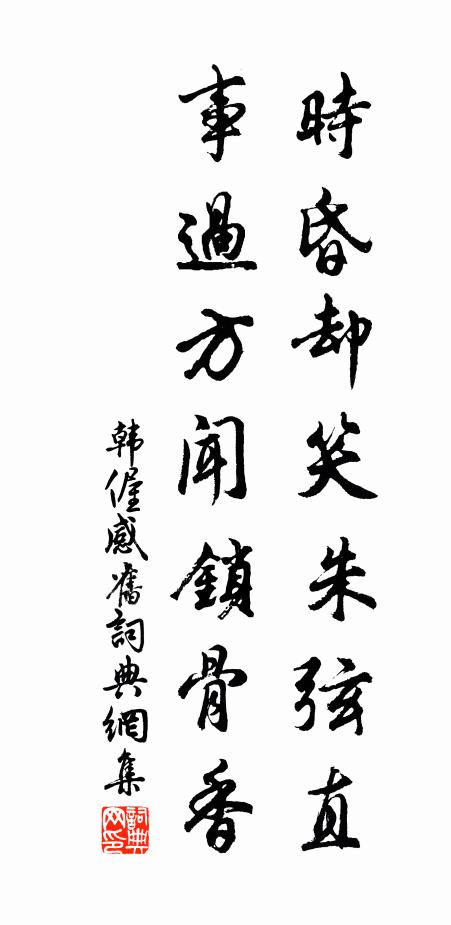 時昏却笑朱弦直
事過方聞鎖骨香
韩偓感舊詞典網集
詞典网印